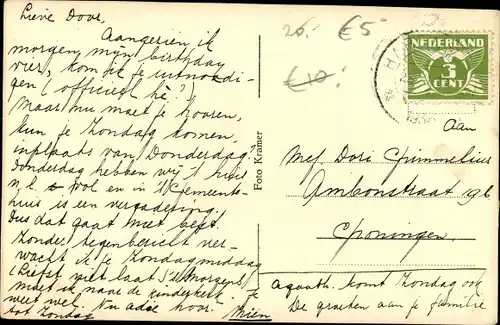 Lieve Door,
Aangezien ik
morgen mijn birthday
vier, kom ik je uitnoodi-
gen (officieel hè?)
Maar nu moet je hooren,
kun je Zondag komen,
inplaats van Donderdag?
Donderdag hebben wij 't huis
n.l. vol en in 't Gemeente-
huis is een vergadering.
Dus dat gaat niet best.
Zonder tegenbericht ver-
wacht ik je Zondagmiddag
(Liefst niet laat, 's Morgens
moet ik naar de kinderkerk. Je
weet wel. Nu adie hoor.
tot Zondag Mien
Foto Kramer
25.- €5-
€10.-
NEDERLAND
3
CENT
Aan
Mej. Dori Grimmelius
Ambonstraat 19b
Groningen.
Agaath. komt Zondag ook
De groeten aan je familie